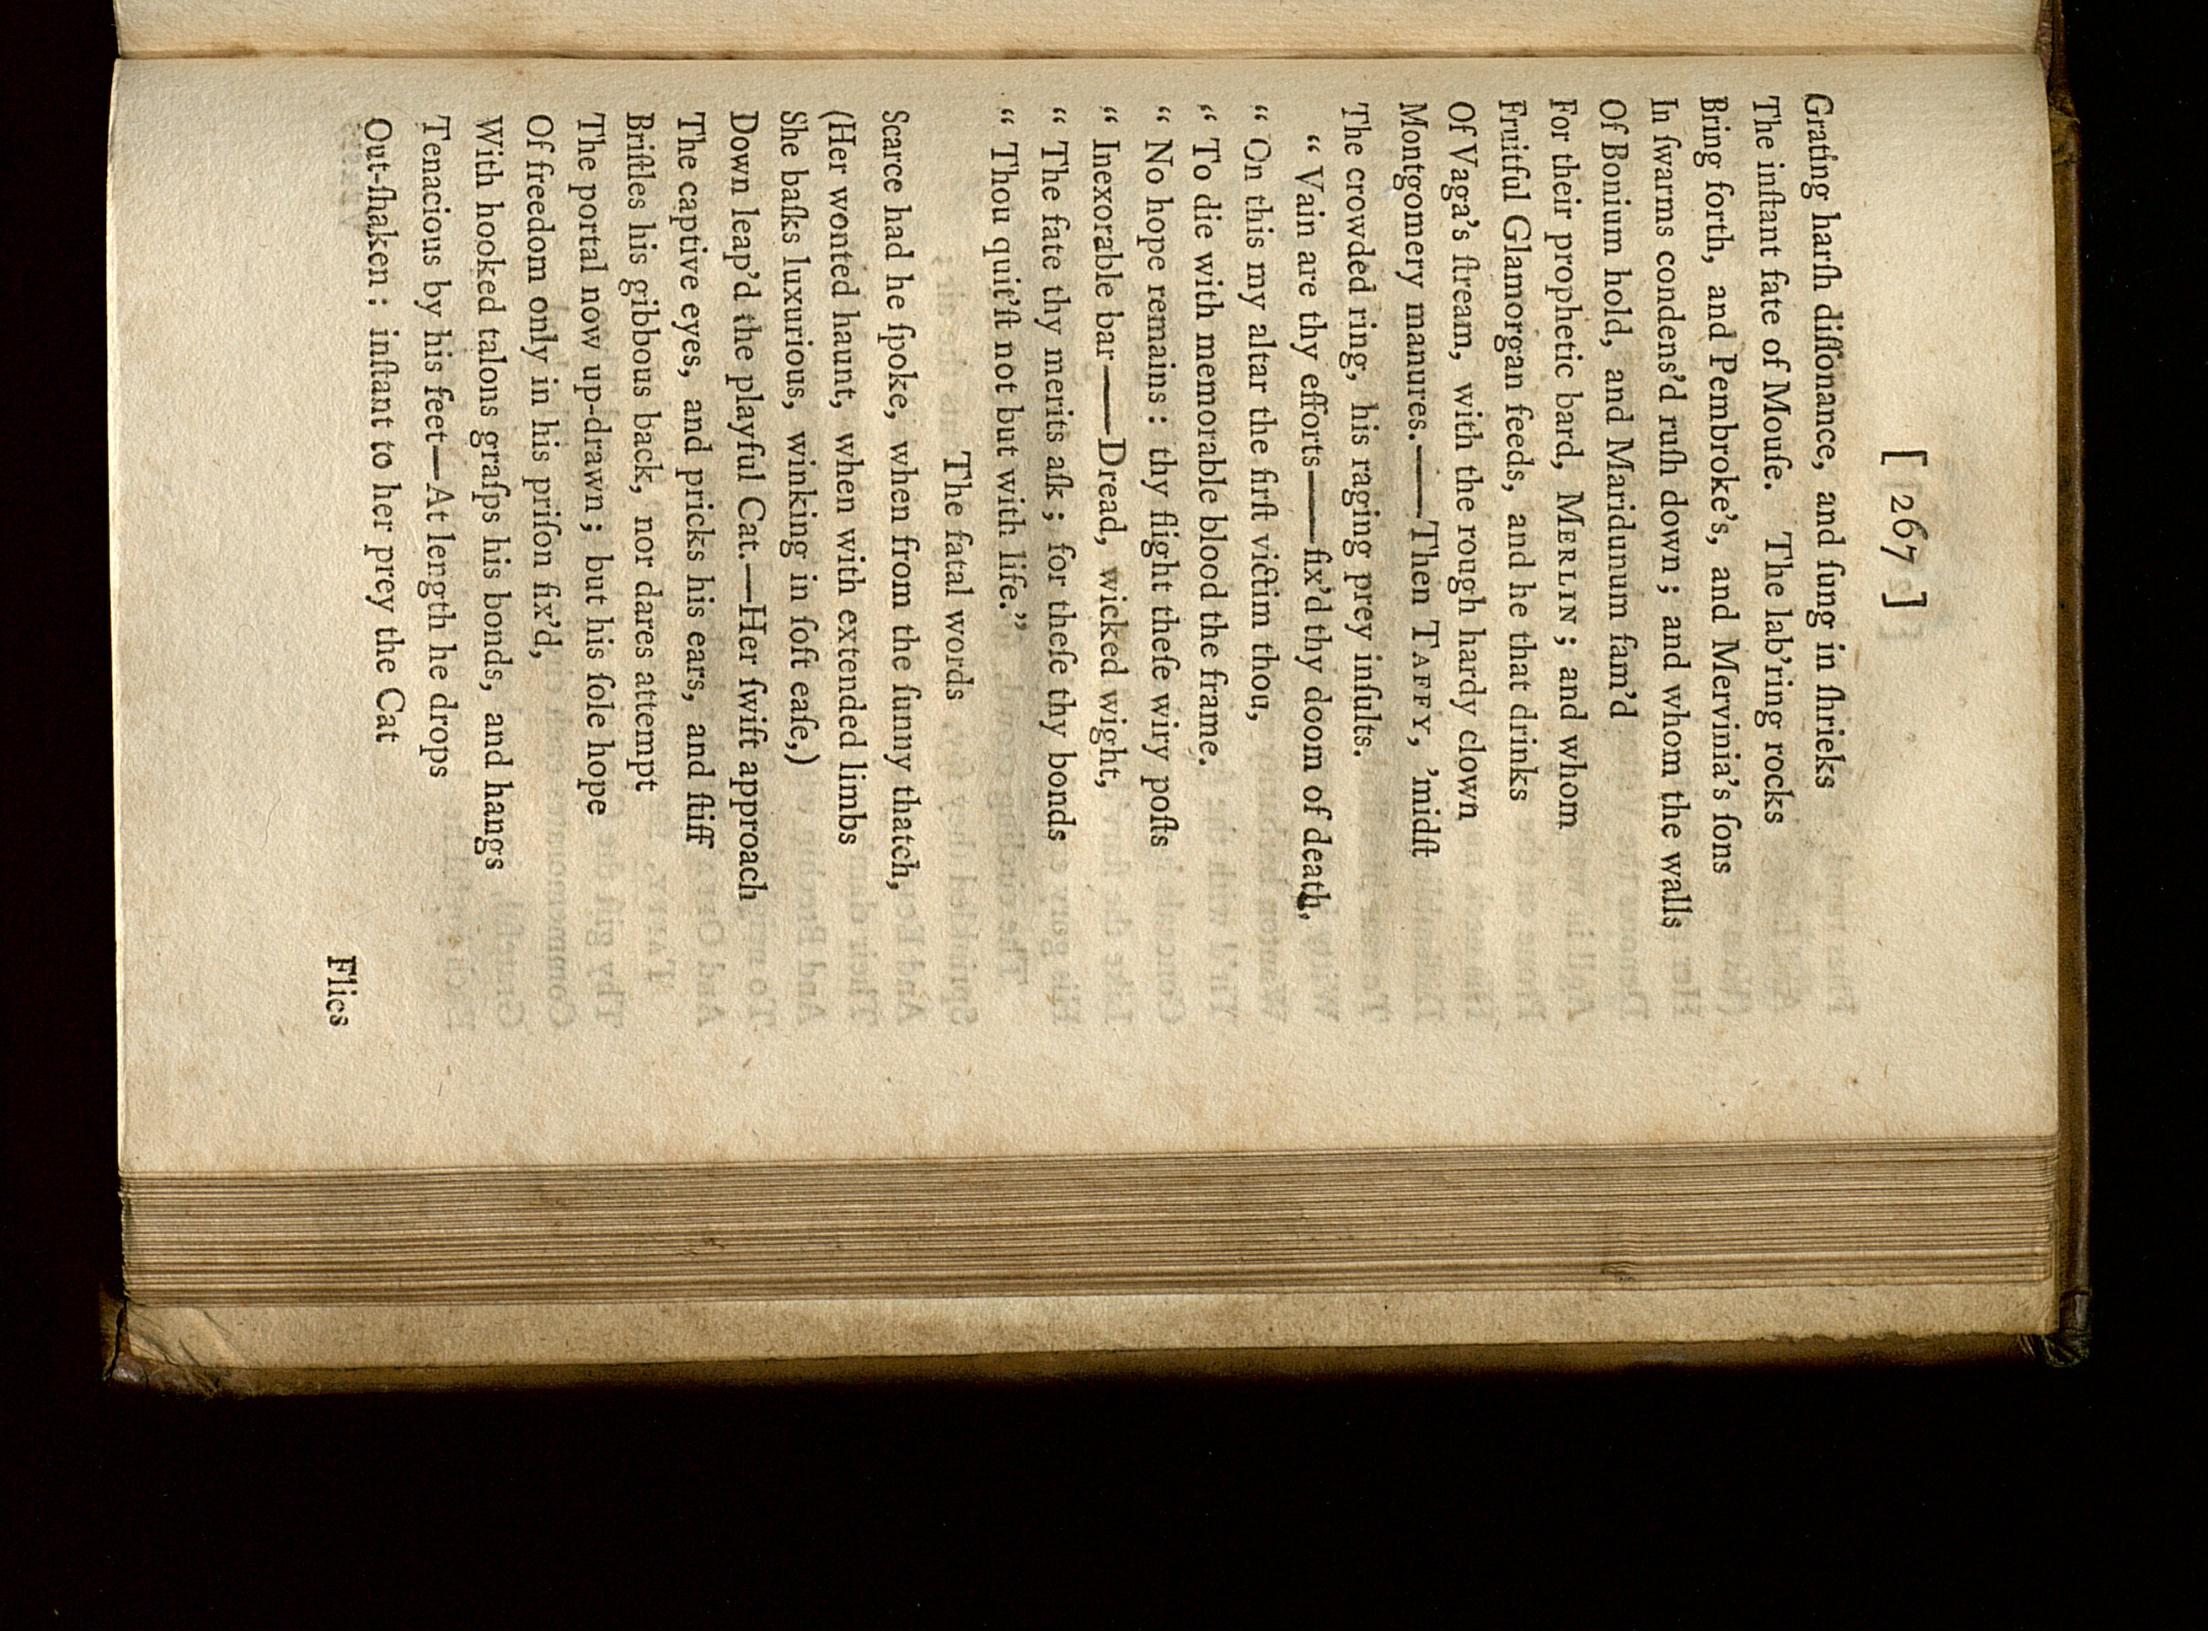 [ 267 ]
Grating harſh diſſonance, and ſung in ſhrieks
The inſtant fate of Mouſe. The lab'ring rocks
Bring forth, and Pembroke's, and Mervinia's ſons
In ſwarms condens'd ruſh down; and whom the walls
Of Bonium hold, and Maridunum fam'd
For their prophetic bard, MERLIN; and whom
Fruitful Glamorgan feeds, and he that drinks
Of Vaga's ſtream, with the rough hardy clown
Montgomery manures.——Then TAFFY, 'midſt
The crowded ring, his raging prey inſults.
“ Vain are thy efforts——fix'd thy doom of death,
“ On this my altar the firſt victim thou,
“ To die with memorable blood the frame.
“ No hope remains: thy flight theſe wiry poſts
“ Inexorable bar——Dread, wicked wight,
“ The fate thy merits aſk; for theſe thy bonds
“ Thou quit'ſt not but with life.”
The fatal words
Scarce had he ſpoke, when from the ſunny thatch,
(Her wonted haunt, when with extended limbs
She baſks luxurious, winking in ſoft eaſe,)
Down leap'd the playful Cat.—Her ſwift approach
The captive eyes, and pricks his ears, and ſtiff
Briſtles his gibbous back, nor dares attempt
The portal now up-drawn; but his ſole hope
Of freedom only in his priſon fix'd,
With hooked talons graſps his bonds, and hangs
Tenacious by his feet—At length he drops
Out-ſhaken: inſtant to her prey the Cat
Flies